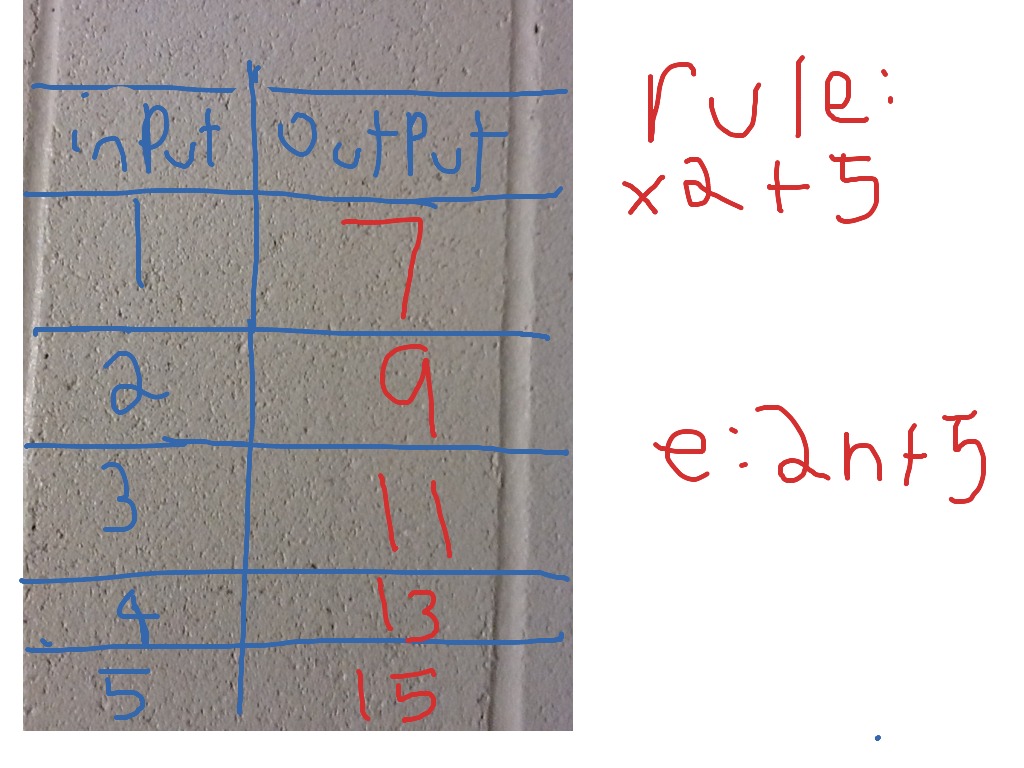 input output
1 7
2 9
3 11
4 13
5 15
rule:
x2+5
e:2n+5